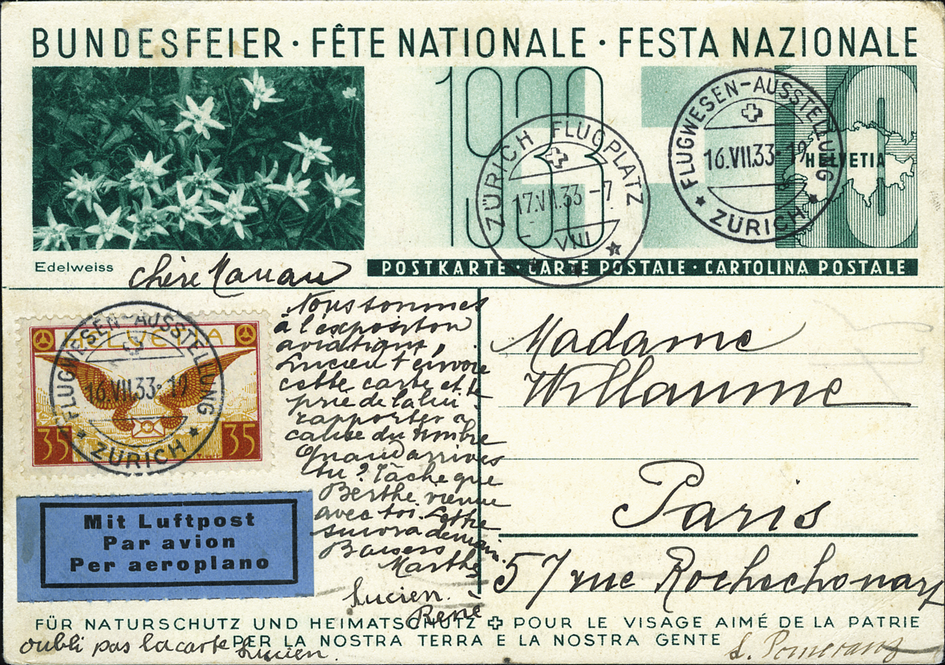 BUNDESFEIER · FÊTE NATIONALE · FESTA NAZIONALE
1933
ZÜRICH FLUGPLATZ
17.VII.33.-7
VIII
FLUGWESEN-AUSSTELLUNG
16.VII.33-19
ZÜRICH
HELVETIA
10
Edelweiss
POSTKARTE · CARTE POSTALE · CARTOLINA POSTALE
HELVETIA
35 35
FLUGWESEN-AUSSTELLUNG
16.VII.33-19
ZÜRICH
Mit Luftpost
Par avion
Per aeroplano
Chère
Nous sommes
à l'exposition
aviatique,
Lucien t'envoie
cette carte et te
prie de la lui
rapporter à
cause du timbre
Quand arrives
tu? Tâche que
Berthe vienne
avec toi. Lettre
suivra demain
Baisers
Marthe
Lucien.
René
oubli pas la carte Lucien.
Madame
Willaume
Paris
57 rue Rochechouart
FÜR NATURSCHUTZ UND HEIMATSCHUTZ POUR LE VISAGE AIMÉ DE LA PATRIE
PER LA NOSTRA TERRA E LA NOSTRA GENTE
S. Pomeranz